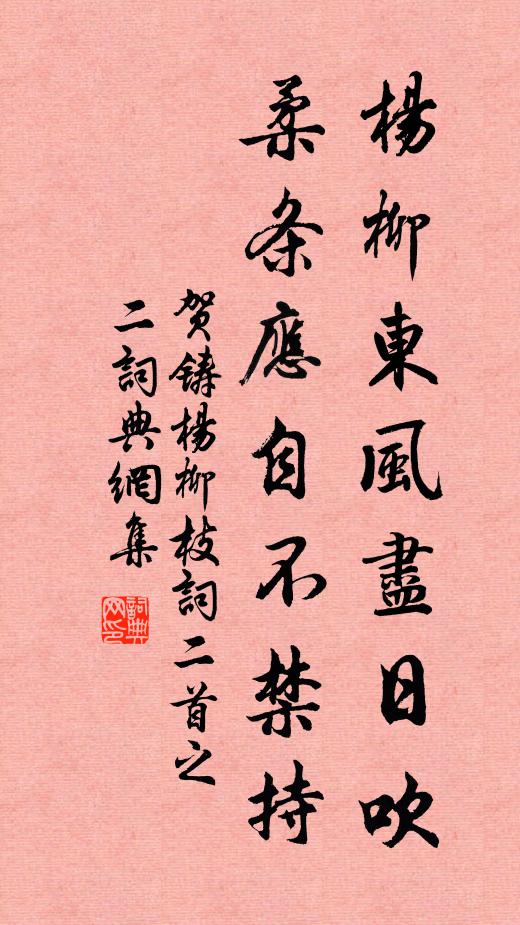 楊柳東風盡日吹
柔条應自不禁持
贺鑄楊柳枝詞二首之
二詞典網集
詞典
网印